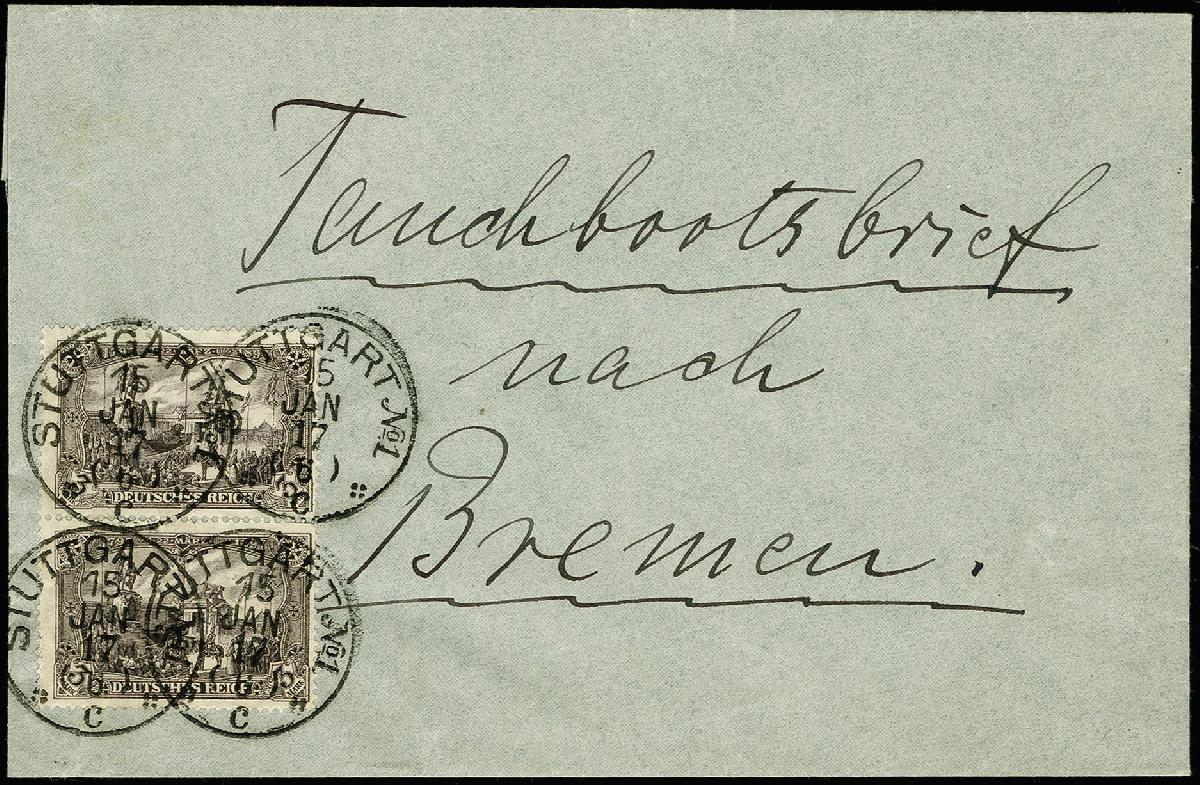 Tauchbootsbrief
nach
Bremen.
STUTTGART No1
15
JAN
17
C
STUTTGART No1
15
JAN
17
C
DEUTSCHES REICH
3 3
STUTTGART No1
15
JAN
17
C
STUTTGART No1
15
JAN
17
C
DEUTSCHES REICH
3 3